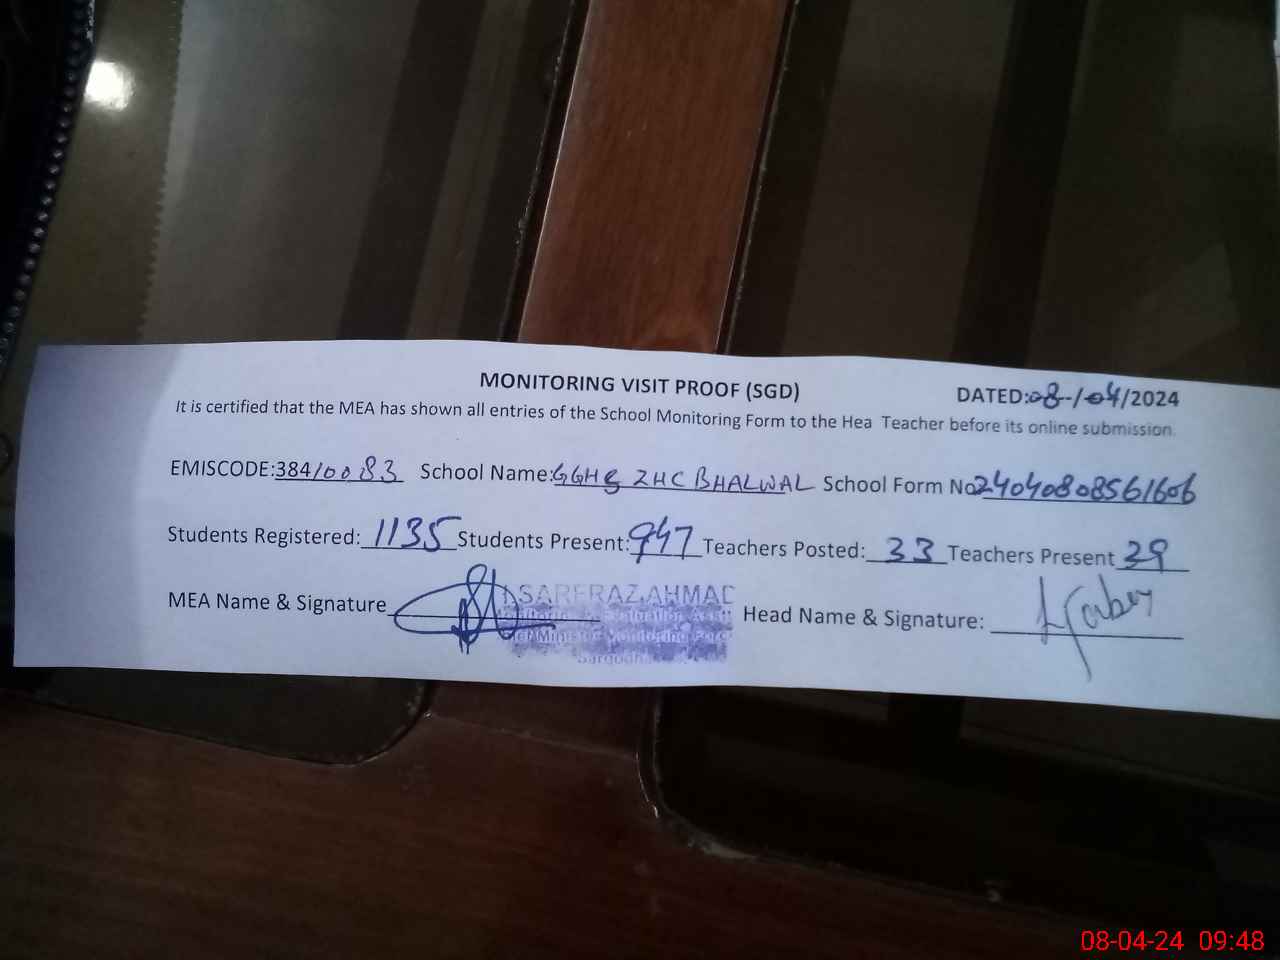 MONITORING VISIT PROOF (SGD) DATED:08-/04/2024
It is certified that the MEA has shown all entries of the School Monitoring Form to the Hea Teacher before its online submission.
EMISCODE:38410083 School Name:GGHS ZHC BHALWAL School Form No 24040808561606
Students Registered: 1135 Students Present: 947 Teachers Posted: 33 Teachers Present 29
MEA Name & Signature SARFRAZ AHMAD Head Name & Signature:
Monitoring & Evaluation Assit
Chief Minister Monitoring Force
Sargodha
08-04-24 09:48